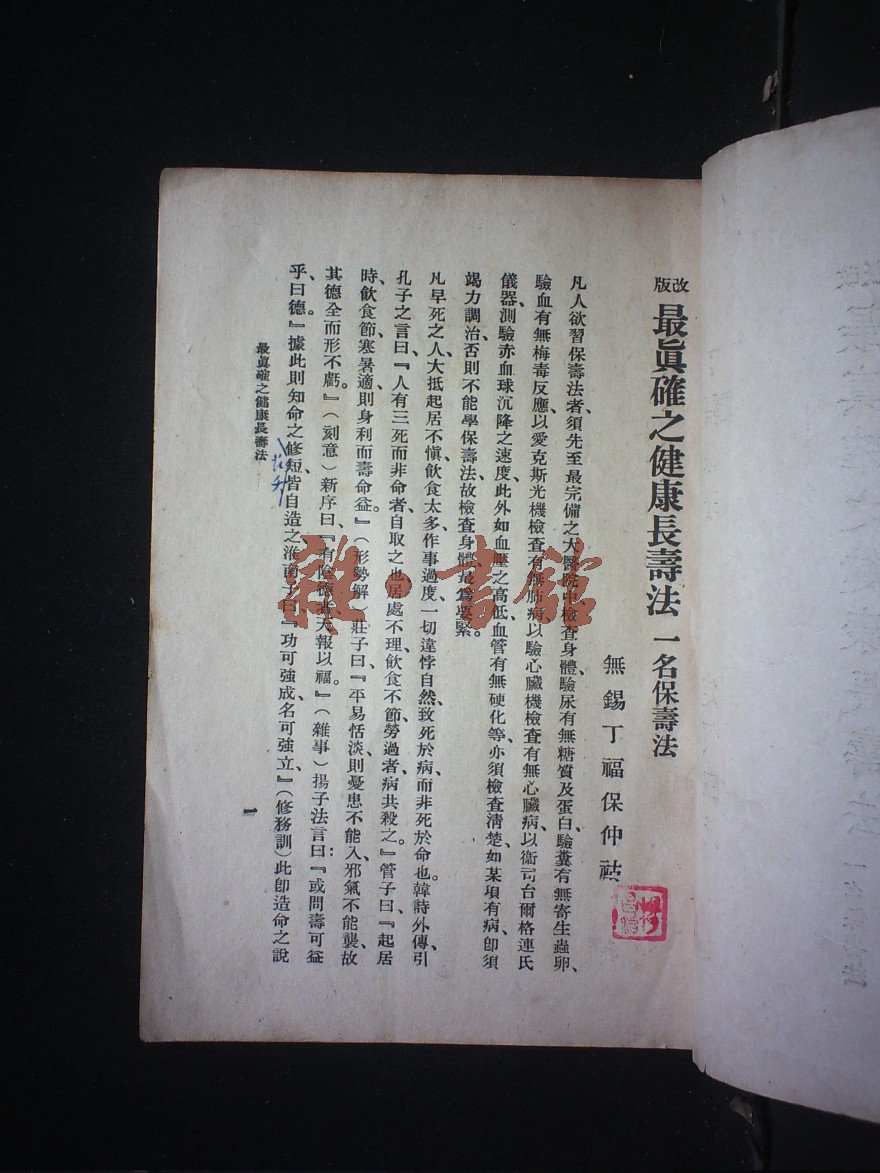 改版 最眞確之健康長壽法 一名保壽法
無錫丁福保仲祜
凡人欲習保壽法者、須先至最完備之大醫院中檢查身體、驗尿有無糖質及蛋白、驗糞有無寄生蟲卵、
驗血有無梅毒反應、以愛克斯光機檢查有無肺病、以驗心臟機檢查有無心臟病、以衞司台爾格連氏
儀器、測驗赤血球沉降之速度、此外如血壓之高低、血管有無硬化等、亦須檢查清楚、如某項有病、卽須
竭力調治、否則不能學保壽法、故檢查身體、最爲要緊。
凡早死之人、大抵起居不愼、飲食太多、作事過度、一切違悖自然、致死於病、而非死於命也。韓詩外傳引
孔子之言曰、『人有三死而非命者、自取之也、居處不理、飲食不節、勞過者、病共殺之。』管子曰、『起居
時、飲食節、寒暑適、則身利而壽命益。』(形勢解)莊子曰、『平易恬淡、則憂患不能入、邪氣不能襲、故
其德全而形不虧。』(刻意)新序曰、『有陰德者、天報以福。』(雜事)揚子法言曰：『或問壽可益
乎、曰德。』據此則知命之修短、皆自造之、淮南子曰、『功可強成、名可強立、』(修務訓)此卽造命之說
最眞確之健康長壽法
一
雜·書館